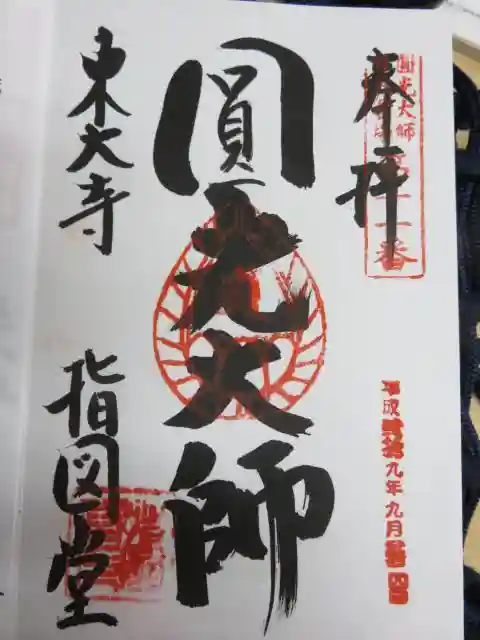 奉拝
圓光大師
第十一番
圓光大師
平成
九年九月
東大寺
指図堂